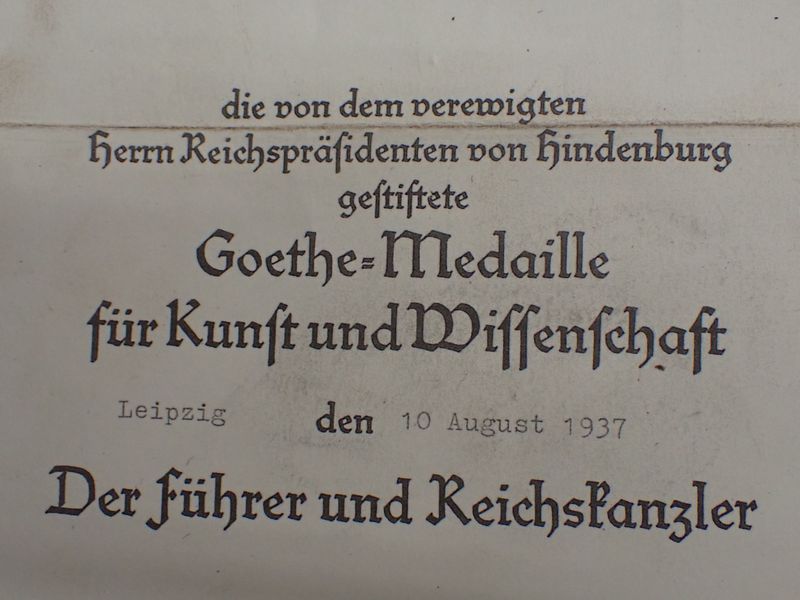 die von dem verewigten
Herrn Reichspräsidenten von Hindenburg
gestiftete
Goethe=Medaille
für Kunst und Wissenschaft
Leipzig den 10 August 1937
Der Führer und Reichskanzler